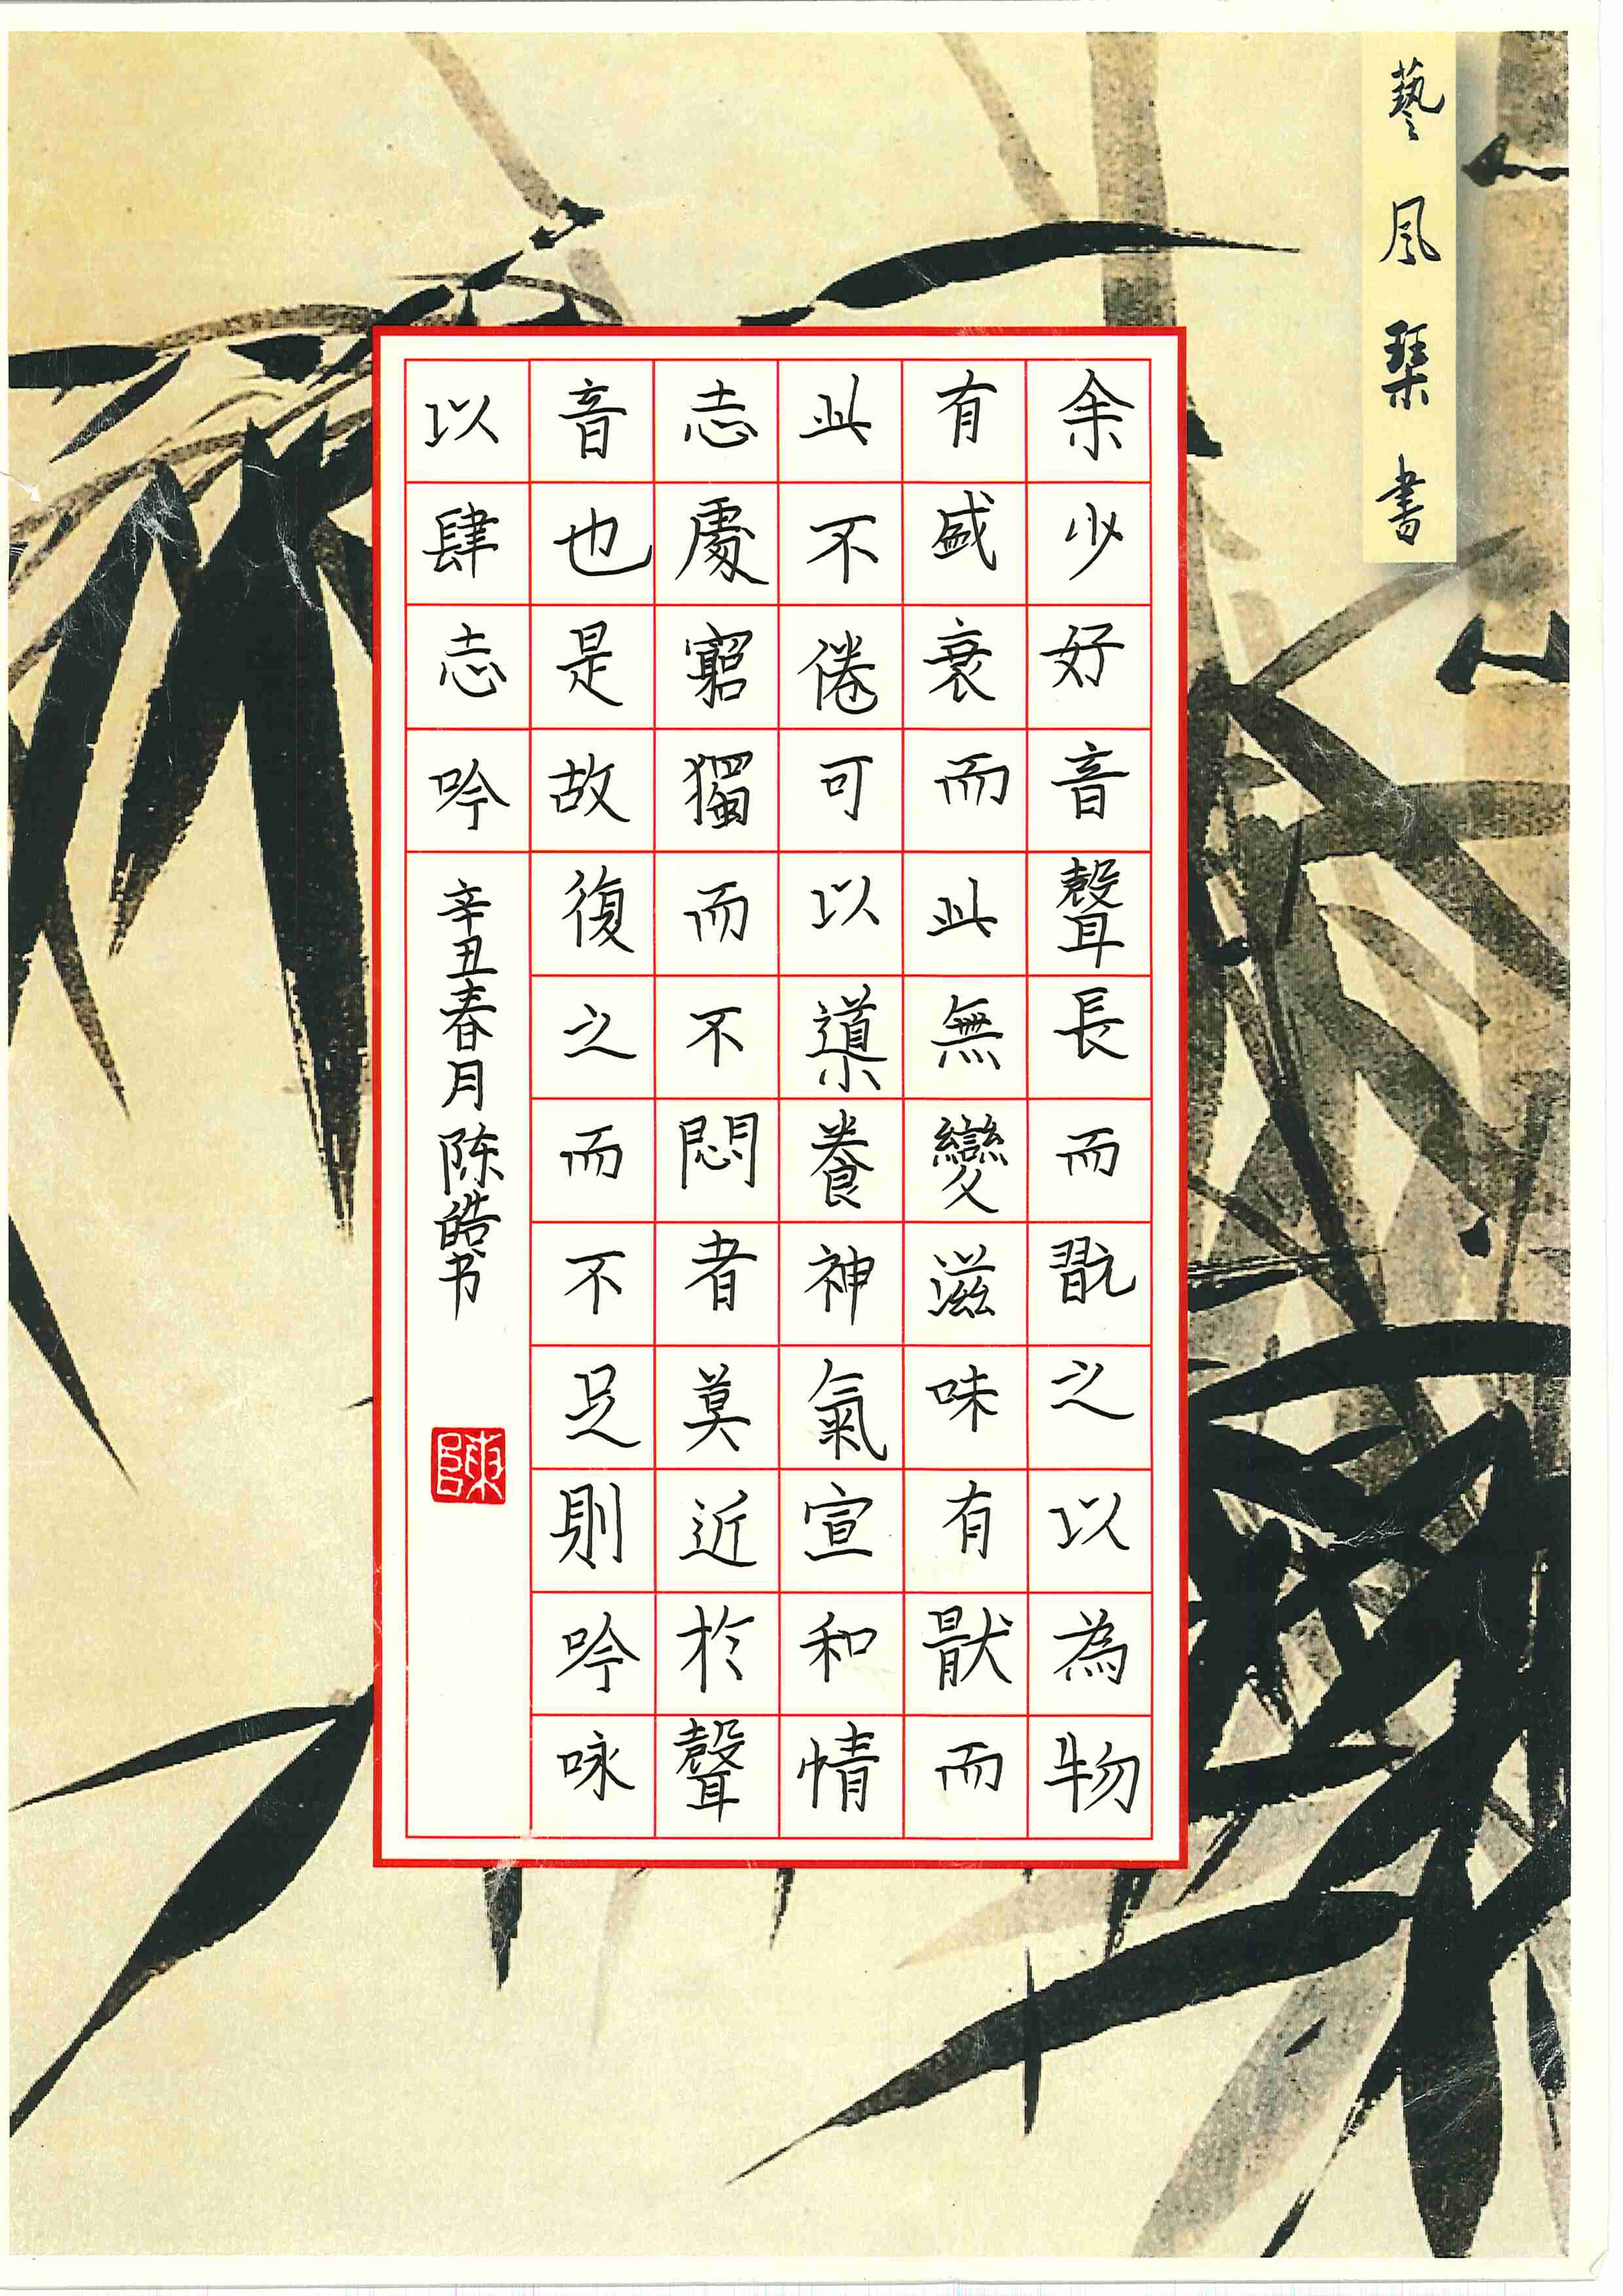 藝風琹書
余少好音聲長而翫之以為物
有盛衰而此無變滋味有猒而
此不倦可以導養神氣宣和情
志處窮獨而不悶者莫近於聲
音也是故復之而不足則吟咏
以肆志吟
辛丑春月陈皓书
陳